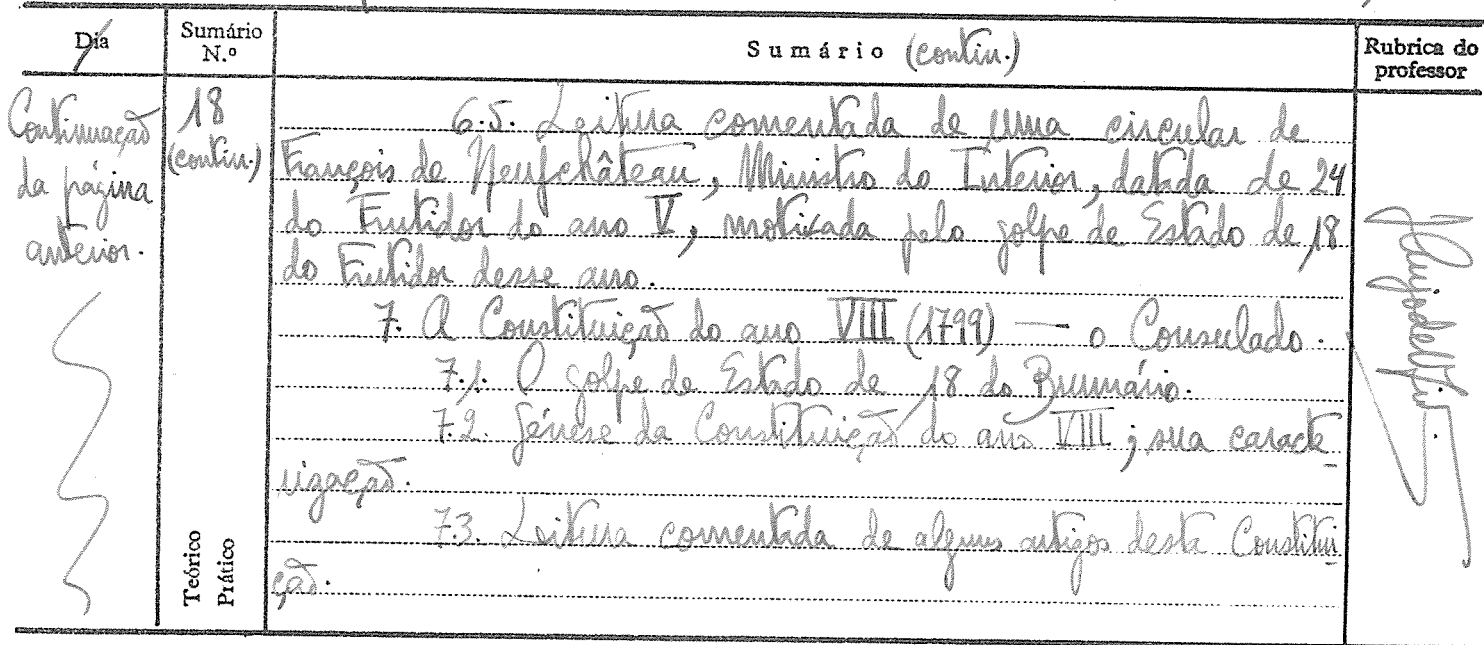 Dia
Sumário N.º
Sumário (contin.)
Rubrica do professor
Continuação da página anterior.
18 (contin.)
6.5. Leitura comentada de uma circular de
François de Neufchâteau, Ministro do Interior, datada de 24
do Frutidor do ano V, motivada pelo golpe de Estado de 18
do Frutidor desse ano.
7. A Constituição do ano VIII (1799) — o Consulado.
7.1. O golpe de Estado de 18 do Brumário.
7.2. Génese da Constituição do ano VIII; sua caracte-
rização.
7.3. Leitura comentada de alguns artigos desta Constitui-
ção.
Teórico
Prático